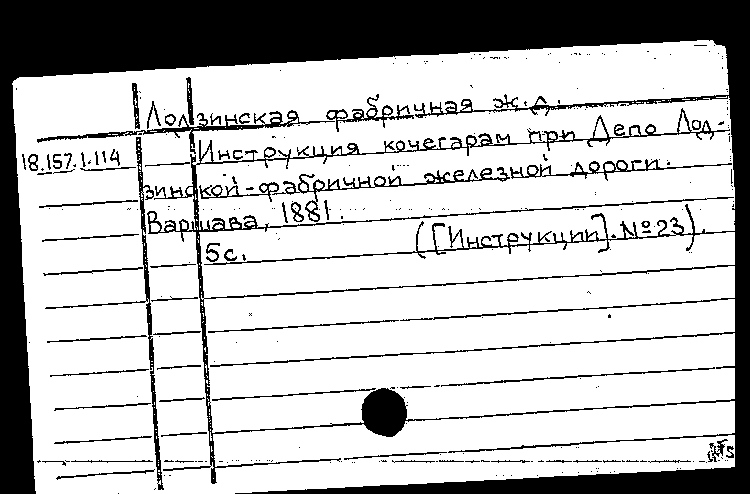 Лодзинская фабричная ж.д.
18.157.1.114 Инструкция кочегарам при Депо Лод-
зинской-фабричной железной дороги.
Варшава, 1881.
5с. ([Инструкции]. №23).